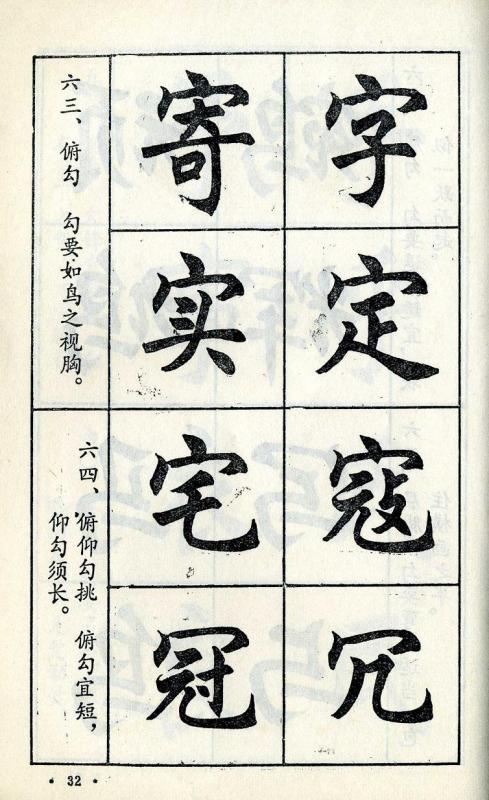 字
定
寄
实
六三、俯勾 勾要如鸟之视胸。
寇
冗
宅
冠
六四、俯仰勾挑 俯勾宜短，
仰勾须长。
• 32 •